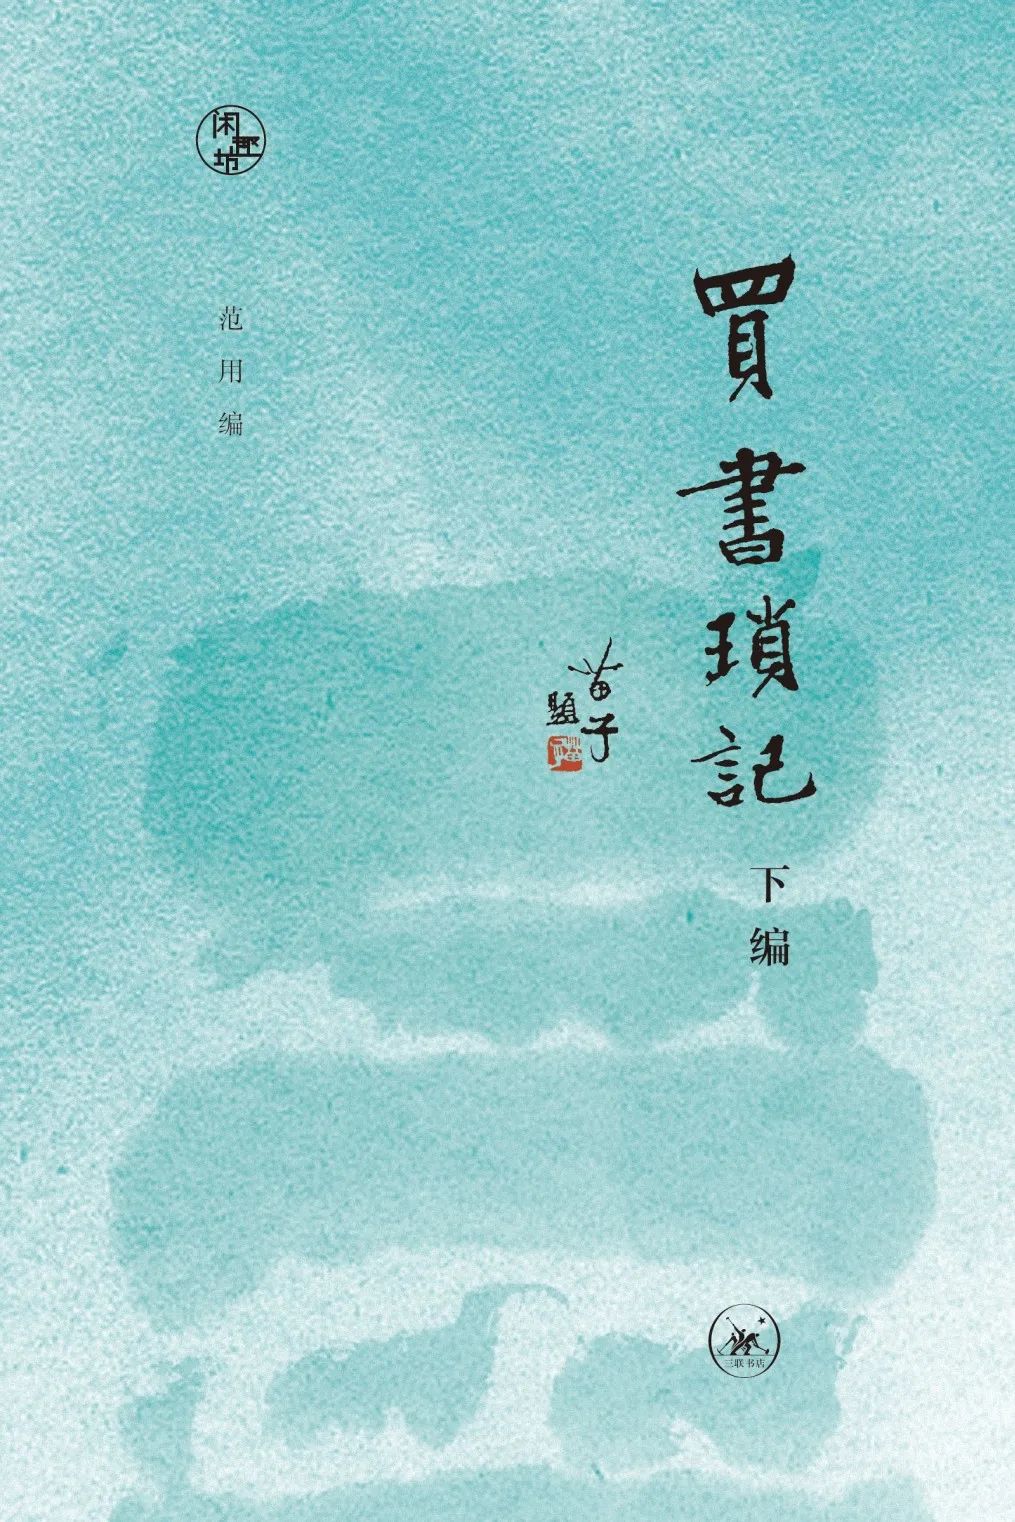 闲趣坊
買書瑣記
下编
苗子
題
范用编
三联书店